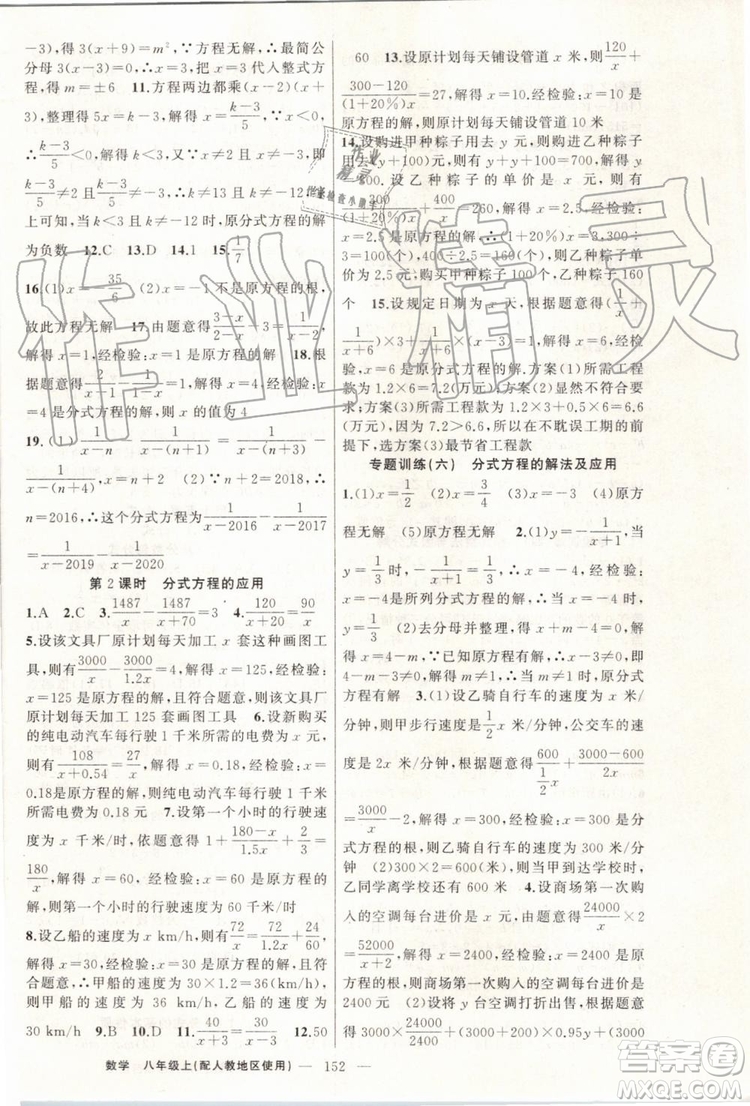 -3),得 3(x+9)=m(x+3),∵方程无解,∴最简公
分母 3(x-3)=0,∴x=3,把 x=3 代人整式方
程,得 m=±6 11.方程两边都乘(x+2)(x+
3),整理得 5x=k-3,解得 x=(k-3)/5,∵x<0,
∴(k-3)/5<0,解得 k<3,∵x≠-2 且 x≠-3,∴
(k-3)/5≠-2,(k-3)/5≠-3,即 k≠-7,k≠-12,综
上可知,当 k<3 且 k≠-7,k≠-12 时,原分式方程的解
为负数 12.C 13.D 14.1 15.1/7
16.(1)x=35/6 (2)x=-1 不是原方程的根,
故此方程无解 17.由题意得(3-x)/(2-x)-1/(x-2)=3,
解得 x=1,经检验:x=1 是原方程的解 18.
根据题意得 2/(x-1)-(x-1)/(x-1)=-1/3,解得 x=4,经检验:x
=4 是分式方程的解,则 x 的值为 4
19.(1)1/(x-n)-1/(x-(n+1))=1/(x-(n+3))-
1/(x-(n+4)),x=n+2 (2)∵x=n+2=2018,∴
n=2016,∴这个分式方程为1/(x-2016)-1/(x-2017)
=1/(x-2019)-1/(x-2020)
第 2 课时 分式方程的应用
1.A 2.C 3.1487/x-1487/(x+70)=3 4.120/(x+20)=90/x
5.设该文具厂原计划每天加工 x 套这种画图工
具,则有3000/x-3000/1.2x=4,解得 x=125,经检验:
x=125 是原方程的解,且符合题意,则该文具厂
原计划每天加工 125 套画图工具 6.设新购买
的纯电动汽车每行驶 1 千米所需的电费为 x 元,
则有108/(x+0.54)=27/x,解得 x=0.18,经检验:x=
0.18 是原方程的解,则纯电动汽车每行驶 1 千米
所需的电费为 0.18 元 7.设第一个小时的行驶
速度为 x 千米/时,依题意得 1+(180-x)/1.5x+2/3=
180/x,解得 x=60,经检验:x=60 是原方程的解,
则第一个小时的行驶速度为 60 千米/时
8.设乙船的速度为 x km/h,则有72/x=72/1.2x+24/60,
解得 x=30,经检验:x=30 是原方程的解且符
合题意,则甲船的速度为 36 km/h,乙船的速度为
30 km/h 9.B 10.D 11.A 12.50
60 13.设原计划每天铺设管道 x 米,则有120/x
+(300-120)/((1+20%)x)=30,解得 x=10,经检验:x=10 是
原方程的解,则原计划每天铺设管道 10 米
14.设购进甲种粽子用去 y 元,则购买乙种粽子
用去(y+100)元,则可得 y+y+100=700,解得 y=
300,设乙种粽子的单价是 x 元,则有
300/((1+20%)x)+400/x=260,解得 x=2.5,经检验:x=
2.5 是原方程的解,∴(1+20%)x=3,300÷
3=100(个),400÷2.5=160(个),160>100,满足题
意,则购买甲种粽子 100 个,购买乙种粽子 160
个 15.设规定日期为 x 天,根据题意得(1/x+
1/(x+6))×3+1/(x+6)×(x-3)=1,解得 x=6,经检
验:x=6 是原方程的解且符合题意,方案(1)所需工程款
为 1.2×6=7.2(万元);方案(2)需误工期,不合
题意;方案(3)所需工程款为 1.2×3+0.5×6=6.6
(万元),∵7.2>6.6,所以在不耽误工期的前
提下,选方案(3)最节省工程款
专题训练(六) 分式方程的解法及应用
1.(1)x=1/2 (2)x=3/4 (3)x=-3 (4)原方
程无解 (5)原方程无解 2.(1)y=-x/(x+1),当
y=1/3 时,-x/(x+1)=1/3,解得 x=-1/4,经检验:x
=-1/4 是所列分式方程的解,∴x=-1/4 时,y=
1/3 (2)去分母并整理,得 x=-m-4,解得 x
=-m-4,∵已知原方程有解,∴x≠-1,∴
-m-4≠-1,∴m≠-3,则当 m≠-3 时,原分式
方程有解 3.(1)设乙骑自行车的速度为 x 米/
分钟,则甲步行速度为1/2x 米/分钟,公交车的速
度为 2x 米/分钟,根据题意得600/(1/2x)+(3000-600)/2x
=3000/x-2,解得 x=300,经检验:x=300 是分
式方程的根,则乙骑自行车的速度为 300 米/分
钟 (2)300×2=600(米),则当甲到达学校时,
乙同学离学校还有 600 米 4.设商场第一次购
入的空调每台进价是 x 元,根据题意得24000/x×2
=52000/(x+2),解得 x=2400,经检验:x=2400 是
原方程的根,则商场第一次购入的空调每台进价是
2400 元 (2)设将 y 台空调打折出售,根据题意得
3000×24000/2400+(3000+200)×0.95y+(3000
数学 八年级上(配人教地区使用) — 152 —